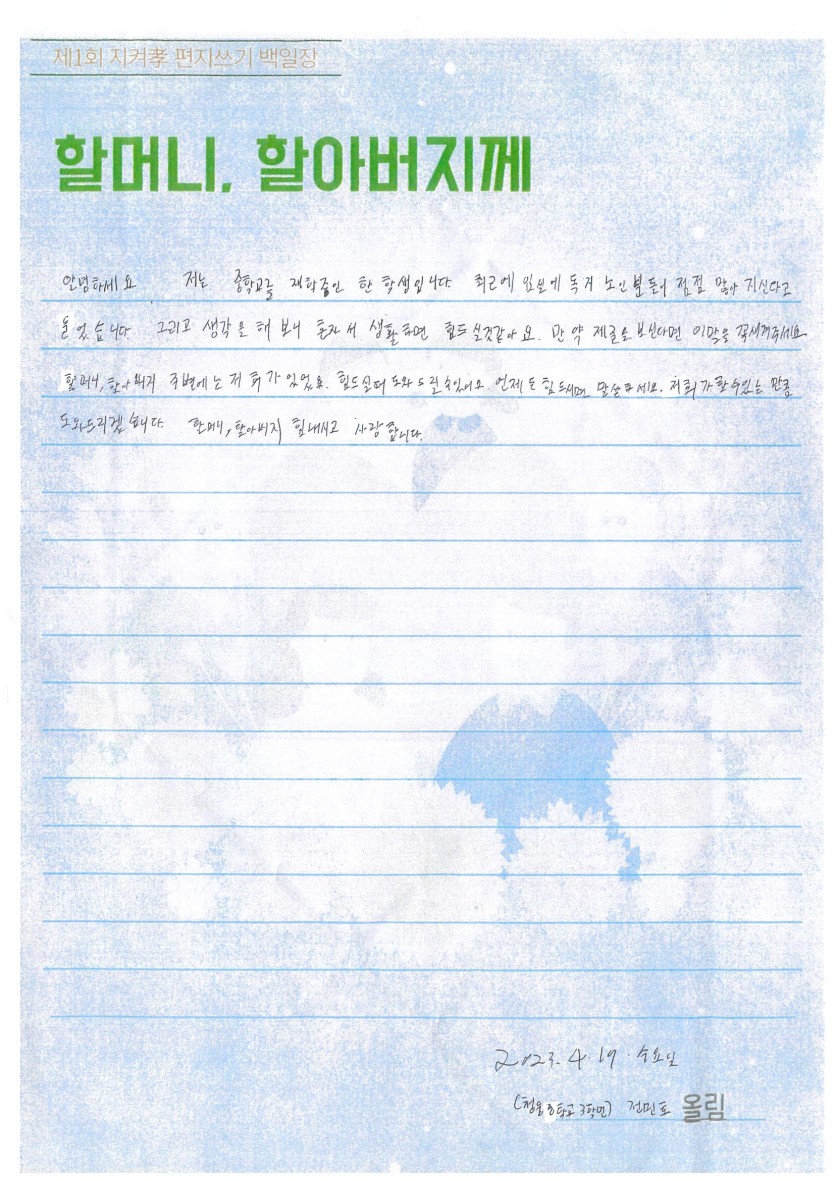 제1회 지켜孝 편지쓰기 백일장
할머니, 할아버지께
안녕하세요 저는 중학교를 재학중인 한 학생입니다. 최근에 독거 노인분들이 점점 많아 지신다고
들었습니다. 그리고 생각을 해 보니 혼자서 생활하면 힘드실것같아요. 만약 제글을 보신다면 이말을 꼭새겨주세요
할머니, 할아버지 주변에는 저희가 있어요. 힘드실때 도와드릴수있어요. 언제든 힘드시면 말씀하세요. 저희가 할수있는 만큼
도와드리겠습니다. 할머니, 할아버지 힘내시고 사랑합니다.
2023. 4. 19. 수요일
중학교 3학년) 전민호 올림